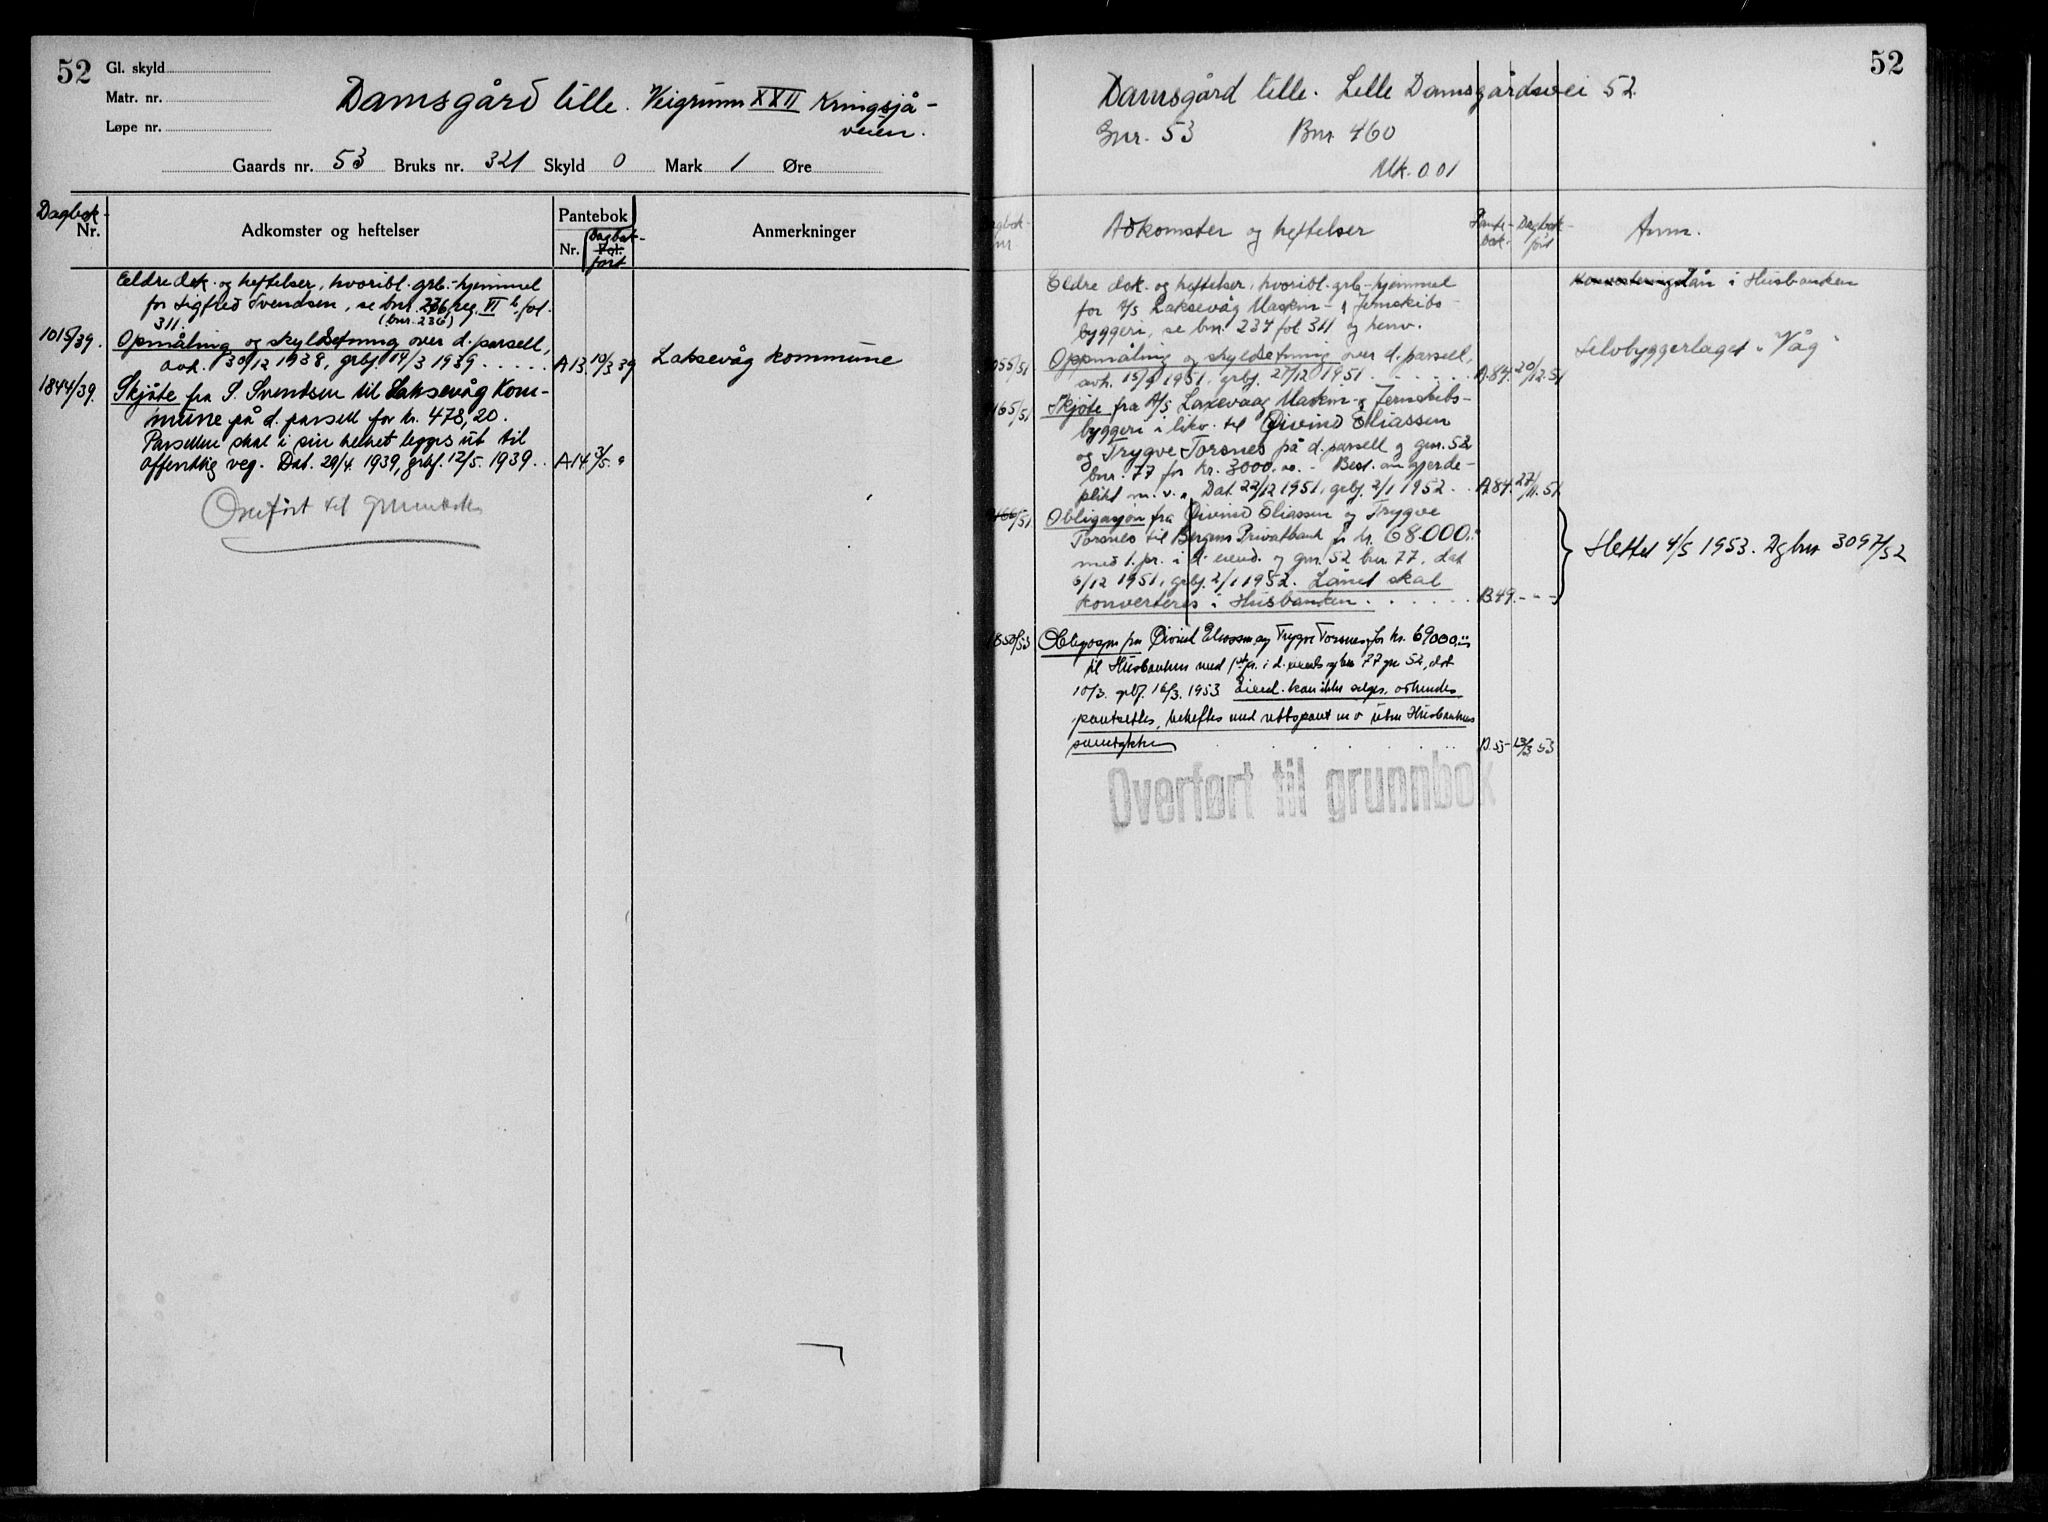 52
Gl. skyld
Matr. nr.
Løpe nr.
Damsgård lille. Veigrunn XXII Kringsjå-
veien.
Gaards nr. 53 Bruks nr. 321 Skyld 0 Mark 1 Øre
Dagbok-
Nr.
Adkomster og heftelser
Pantebok
Nr. Fol.
Dagbok-
ført
Anmerkninger
Eldre dok. og heftelser, hvoribl. grb.-hjemmel
for Sigfred Svendsen, se bnr. 236, reg. VI b, fol.
311. (bnr. 236)
1015/39. Opmåling og skylddeling over d. parsell,
avh. 30/12 1938, grbf. 14/3 1939 . . . . . A 13 10/3 39 Laksevåg kommune
1844/39. Skjøte fra S. Svendsen til Laksevåg Kom-
mune på d. parsell for kr. 478,20.
Parsellen skal i sin helhet legges ut til
offentlig veg. Dat. 29/4 1939, grbf. 12/5. 1939 . . A 14 3/5. "
Overført til grunnboken
52
Damsgård lille. Lille Damsgårdsvei 52.
Gnr. 53 Bnr 460
Mk. 0 01
Dagbok-
nr
Adkomster og heftelser
Pante-
bok-
Dagbok-
ført
Anm.
Eldre dok. og heftelser, hvoribl. grb-hjemmel
for A/S Laksevåg Maskin- & Jernskibs-
byggeri, se bnr. 237 fol 311 og henv.
Konverteringslån i Husbanken
Selvbyggerlaget "Våg"
055/51 Oppmåling og skylddeling over d. parsell,
avh. 15/9 1951, grbf. 27/12 1951 . . . . . . A.84. 20/12.51
165/51 Skjøte fra A/S Laxevaag Maskin- & Jernskibs-
byggeri i likv. til Øivind Eliassen
og Trygve Torsnes på d. parsell og gnr. 52
bnr. 77 for kr. 3000.00. - Best. om gjerde-
plikt m. v. Dat. 22/12 1951, grbf. 2/1 1952 . . A.84. 27/11.51
166/51 Obligasjon fra Øivind Eliassen og Trygve
Torsnes til Bergens Privatbank for kr. 68.000.-
med 1. pr. i d. eiend. og gnr. 52 bnr. 77. dat
6/12 1951, grbf. 2/1 1952. Lånet skal
konverteres i Husbanken . . . . . . B.49. - - -
Slettet 4/5 1953. Dgbnr 3097/52
850/53 Obligasjon fra Øivind Eliassen og Trygve Torsnes for kr. 69000.-
til Husbanken med 1ste pr. i d. eiend. og bnr 77 gnr 52, dat
10/3. grbf. 16/3. 1953 Eiend. kan ikke selges, avhendes
pantsettes, beheftes med utleggspant m v uten Husbankens
samtykke . . . . . . B.53- 13/3 53
Overført til grunnbok